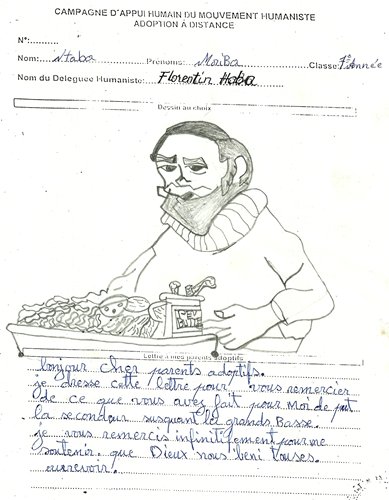 CAMPAGNE D'APPUI HUMAIN DU MOUVEMENT HUMANISTE
ADOPTION À DISTANCE
N°:..........
Nom: Haba Prénoms: Moriba Classe: 7e Année
Nom du Deleguee Humaniste: Florentin Haba
Dessin au choix
Lettre à mes parents adoptifs
bonjour cher parents adoptifs.
je dresse cette lettre pour vous remercier
de ce que vous avez fait pour moi de
la secondaur susquant la grands Basse.
je vous remercis infinitifement pour me
soutenir. que Dieux nous beni touses.
aurevoir!